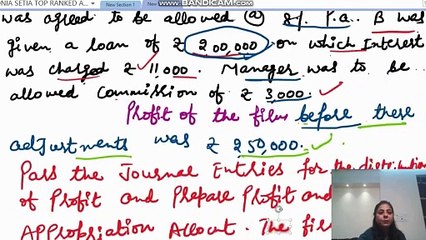 WWW.BANDICAM.COM
ONIA SETIA TOP RANKED A... New Section 1 New Section
was agreed to be allowed @ 8%. P.a. B was
given a loan of ₹ 2,00,000 on which Interest
was charged ₹ 11000. Manager was to be
allowed Commission of ₹ 3,000
Profit of the film before these
adjustments was ₹ 250,000.
Pass the Journal Entries for the distribution
of Profit and Prepare Profit and
Appropriation Account. The fir